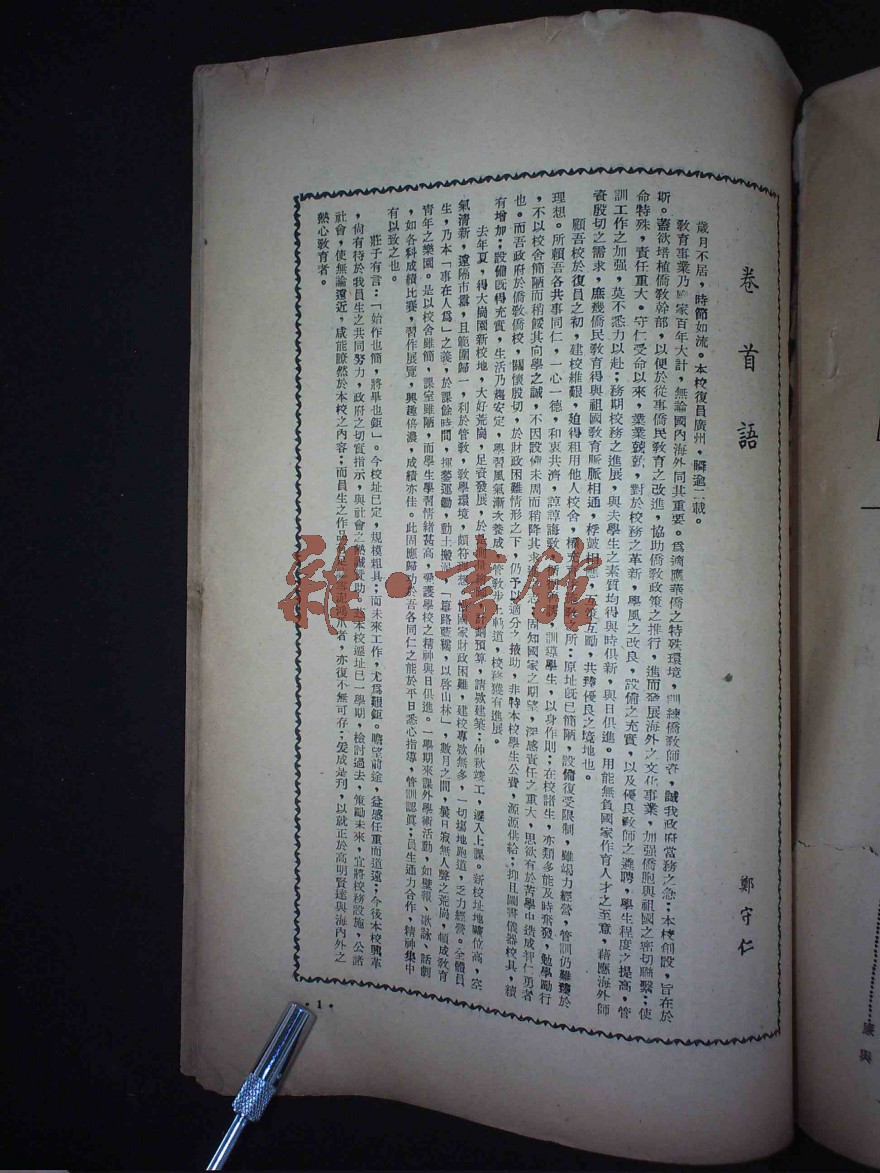 卷首語
鄭守仁
歲月不居，時節如流。本校復員廣州，瞬逾二載。
教育事業乃國家百年大計，無論國內海外同其重要。爲適應華僑之特殊環境，訓練僑教師資，誠我政府當務之急；本校創設，旨在於
斯。蓋欲培植僑教幹部，以便於從事僑民教育之改進，協助僑教政策之推行，進而發展海外之文化事業，加强僑胞與祖國之密切聯繫；使
命特殊，責任重大。守仁受命以來，業業兢兢，對於校務之革新，學風之改良，設備之充實，以及優良教師之遴聘，學生程度之提高，管
訓工作之加强，莫不悉力以赴；務期校務之進展，與夫學生之素質均得與時俱新，與日俱進。用能無負國家作育人才之至意，藉應海外師
資殷切之需求，庶幾僑民教育得與祖國教育脈脈相通，桴鼓相應，互策互勵，共臻優良之境地也。
顧吾校於復員之初，建校維艱，廹得租用他人校舍，之所；原址旣已簡陋，設備復受限制，雖竭力經營，管訓仍難臻於
理想。所賴吾各共事同仁，一心一德，和衷共濟，諄諄誨教，訓導學生，以身作則；在校諸生，亦類多能及時奮發，勉學勵行
，不以校舍簡陋而稍餒其向學之誠，不因設備未周而稍降其求，固知國家之期望，深感責任之重大，思欲有於苦學中造成智仁勇者
也。而吾政府於僑教僑校，關懷殷切，於財政困難情形之下，仍予以適分之掖助，非特本校學生公費，源源供給；抑且圖書儀器校具，續
有增加；設備旣得充實，生活乃趨安定，學習風氣漸次養成，管教步上軌道，校務獲有進展。
去年夏，得大崗園新校地，大好荒崗，足資發展，於計劃預算，請欵建築；仲秋竣工，遷入上課。新校址地曠位高，空
氣清新，遠隔市囂，且範圍歸一，利於管教，教學環境，頗符理想。惟國家財政困難，建校專欵無多，一切塲地跑道，乏力經營。全體員
生，乃本「事在人爲」之義，於課餘時間，揮鋤運鋤，動土搬泥，「篳路藍縷，以啓山林」，數月之間，曩日寂無人聲之荒崗，頓成教育
青年之樂園。是以校舍雖簡，課室雖陋，而學生學習情緒甚高，愛護學校之精神與日俱進。一學期來課外學術活動，如壁報、歌詠、話劇
，如各科成績比賽，習作展覽，興趣倍濃，成績亦佳。此固應歸功於吾各同仁之能於平日悉心指導，管訓認眞；員生通力合作，精神集中
有以致之也。
莊子有言：「始作也簡，將畢也鉅」。今校址已定，規模粗具；而未來工作，尤爲艱鉅。瞻望前途，益感任重而道遠；今後本校興革
，尙有待於我員生之共同努力，政府之切實指示，與社會之熱誠贊助。本校遷址已一學期，檢討過去，策勵未來，宜將校務設施，公諸
社會，使無論遠近，咸能瞭然於本校之內容；而員生之作品，足者，亦復不無可存；爰成是刋，以就正於高明賢達與海內外之
熱心教育者。
·1·
雜·書館
廉與